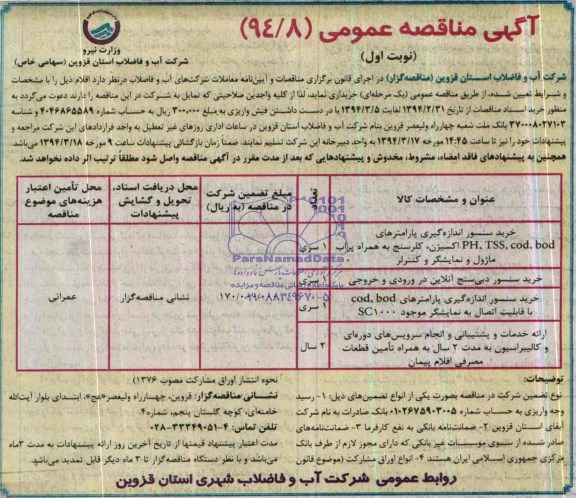 آگهی مناقصه عمومی (۹۴/۸)
(نوبت اول)
وزارت نیرو
شرکت آب و فاضلاب استان قزوین (سهامی خاص)
شرکت آب و فاضلاب استان قزوین (مناقصه‌گزار) در اجرای قانون برگزاری مناقصات و آیین‌نامه معاملات شرکت‌های آب و فاضلاب درنظر دارد اقلام ذیل را با مشخصات
و شرایط تعیین شده، از طریق مناقصه عمومی (یک مرحله‌ای) خریداری نماید، لذا از کلیه واجدین صلاحیتی که تمایل به شرکت در این مناقصه را دارند دعوت می‌گردد به
منظور خرید اسناد مناقصات از تاریخ ۱۳۹۴/۲/۳۱ لغایت ۱۳۹۴/۳/۵ با در دست داشتن فیش واریزی به مبلغ ۳۰۰,۰۰۰ ریال به حساب شماره ۴۰۴۶۸۶۵۵۸۹ و شناسه
۳۷۰۰۰۸۰۲۷۱۰۳ بانک ملت شعبه چهارراه ولیعصر قزوین بنام شرکت آب و فاضلاب استان قزوین در ساعات اداری روزهای غیر تعطیل به واحد قراردادهای این شرکت مراجعه و
پیشنهادات خود را نیز تا ساعت ۱۴:۴۵ مورخه ۱۳۹۴/۳/۱۷ به واحد دبیرخانه این شرکت تسلیم نمایند. ضمناً زمان بازگشائی پیشنهادات ساعت ۹ مورخه ۱۳۹۴/۳/۱۸ می‌باشد
همچنین به پیشنهادهای فاقد امضاء، مشروط، مخدوش و پیشنهادهایی که بعد از مدت مقرر در آگهی مناقصه واصل شود مطلقاً ترتیب اثر داده نخواهد شد.
عنوان و مشخصات کالا
تعداد
مبلغ تضمین شرکت در مناقصه (به ریال)
محل دریافت اسناد، تحویل و گشایش پیشنهادات
محل تأمین اعتبار هزینه‌های موضوع مناقصه
خرید سنسور اندازه‌گیری پارامترهای
PH, TSS, cod, bod اکسیژن، کلرسنج به همراه پراب
ماژول و نمایشگر و کنترلر
۱ سری
خرید سنسور دبی‌سنج آنلاین در ورودی و خروجی
سری
خرید سنسور اندازه‌گیری پارامترهای cod, bod
با قابلیت اتصال به نمایشگر موجود SC۱۰۰۰
۱ سری
ارائه خدمات و پشتیبانی و انجام سرویس‌های دوره‌ای
و کالیبراسیون به مدت ۲ سال به همراه تأمین قطعات
مصرفی اقلام پیمان
۲ سال
نشانی مناقصه‌گزار
عمرانی
ParsNamadData
۰۲۱-۸۸۳۴۹۶۷۰-۵
توضیحات:
نوع تضمین شرکت در مناقصه بصورت یکی از انواع تضمین‌های ذیل: ۱- رسید
وجه واریزی به حساب شماره ۰۱۰۲۶۷۵۹۰۳۰۰۵ بانک صادرات به نام شرکت
آبفای استان قزوین ۲- ضمانت‌نامه بانکی به نفع کارفرما ۳- ضمانت‌نامه‌های
صادر شده از سوی موسسات غیر بانکی که دارای مجوز لازم از طرف بانک
مرکزی جمهوری اسلامی ایران هستند ۴- انواع اوراق مشارکت (موضوع قانون
نحوه انتشار اوراق مشارکت مصوب ۱۳۷۶)
نشانی مناقصه‌گزار: قزوین، چهارراه ولیعصر«عج»، ابتدای بلوار آیت‌الله
خامنه‌ای، کوچه گلستان پنجم، شماره۴.
تلفن تماس: ۴-۳۳۳۴۹۰۵۱-۰۲۸
مدت اعتبار پیشنهاد قیمتها از تاریخ آخرین روز ارائه پیشنهادات به مدت ۳ماه
می‌باشد و با نظر دستگاه مناقصه‌گزار تا ۳ ماه دیگر قابل تمدید می‌باشد.
روابط عمومی شرکت آب و فاضلاب شهری استان قزوین